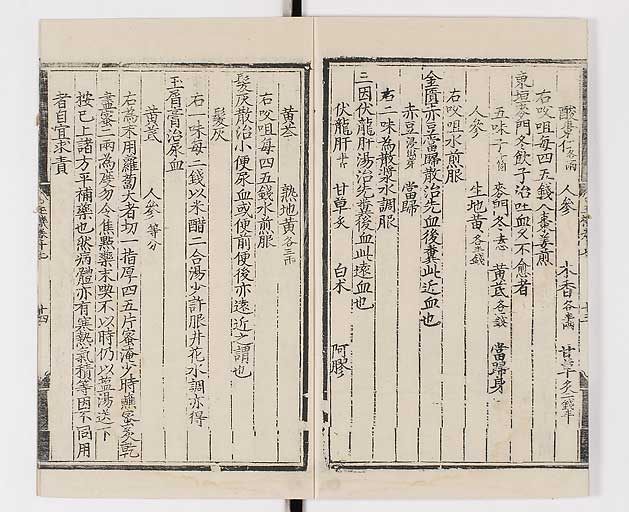 酸棗仁各一兩 人參 木香各半兩 甘草炙一錢半
右㕮咀每四五錢入棗姜煎
東垣麥門冬飲子治吐血久不愈者
五味子 麥門冬 黃茋各一錢 當歸身
人參 生地黃各五錢
右㕮咀水煎服
金匱赤豆當歸散治先血後糞此近血也
赤豆浸出芽 當歸
右二味為散漿水調服
三因伏龍肝湯治先糞後血此遠血也
伏龍肝 甘草炙 白术 阿膠
黃芩 熟地黃各三兩
右㕮咀每四五錢水煎服
髮灰散治小便尿血或便前便後亦遠近之謂也
髮灰
右一味每二錢以米醋二合湯少許服井花水調亦得
玉屑膏治尿血
黃茋 人參等分
右為末用蘿蔔大者切一指厚四五片蜜淹少時蘸蜜炙乾
盡蜜二兩為度勿令焦點藥末喫不以時仍以盐湯送下
按已上諸方平補藥也然病體亦有寒熱氣積等因不同用
者自宜求責
廿四